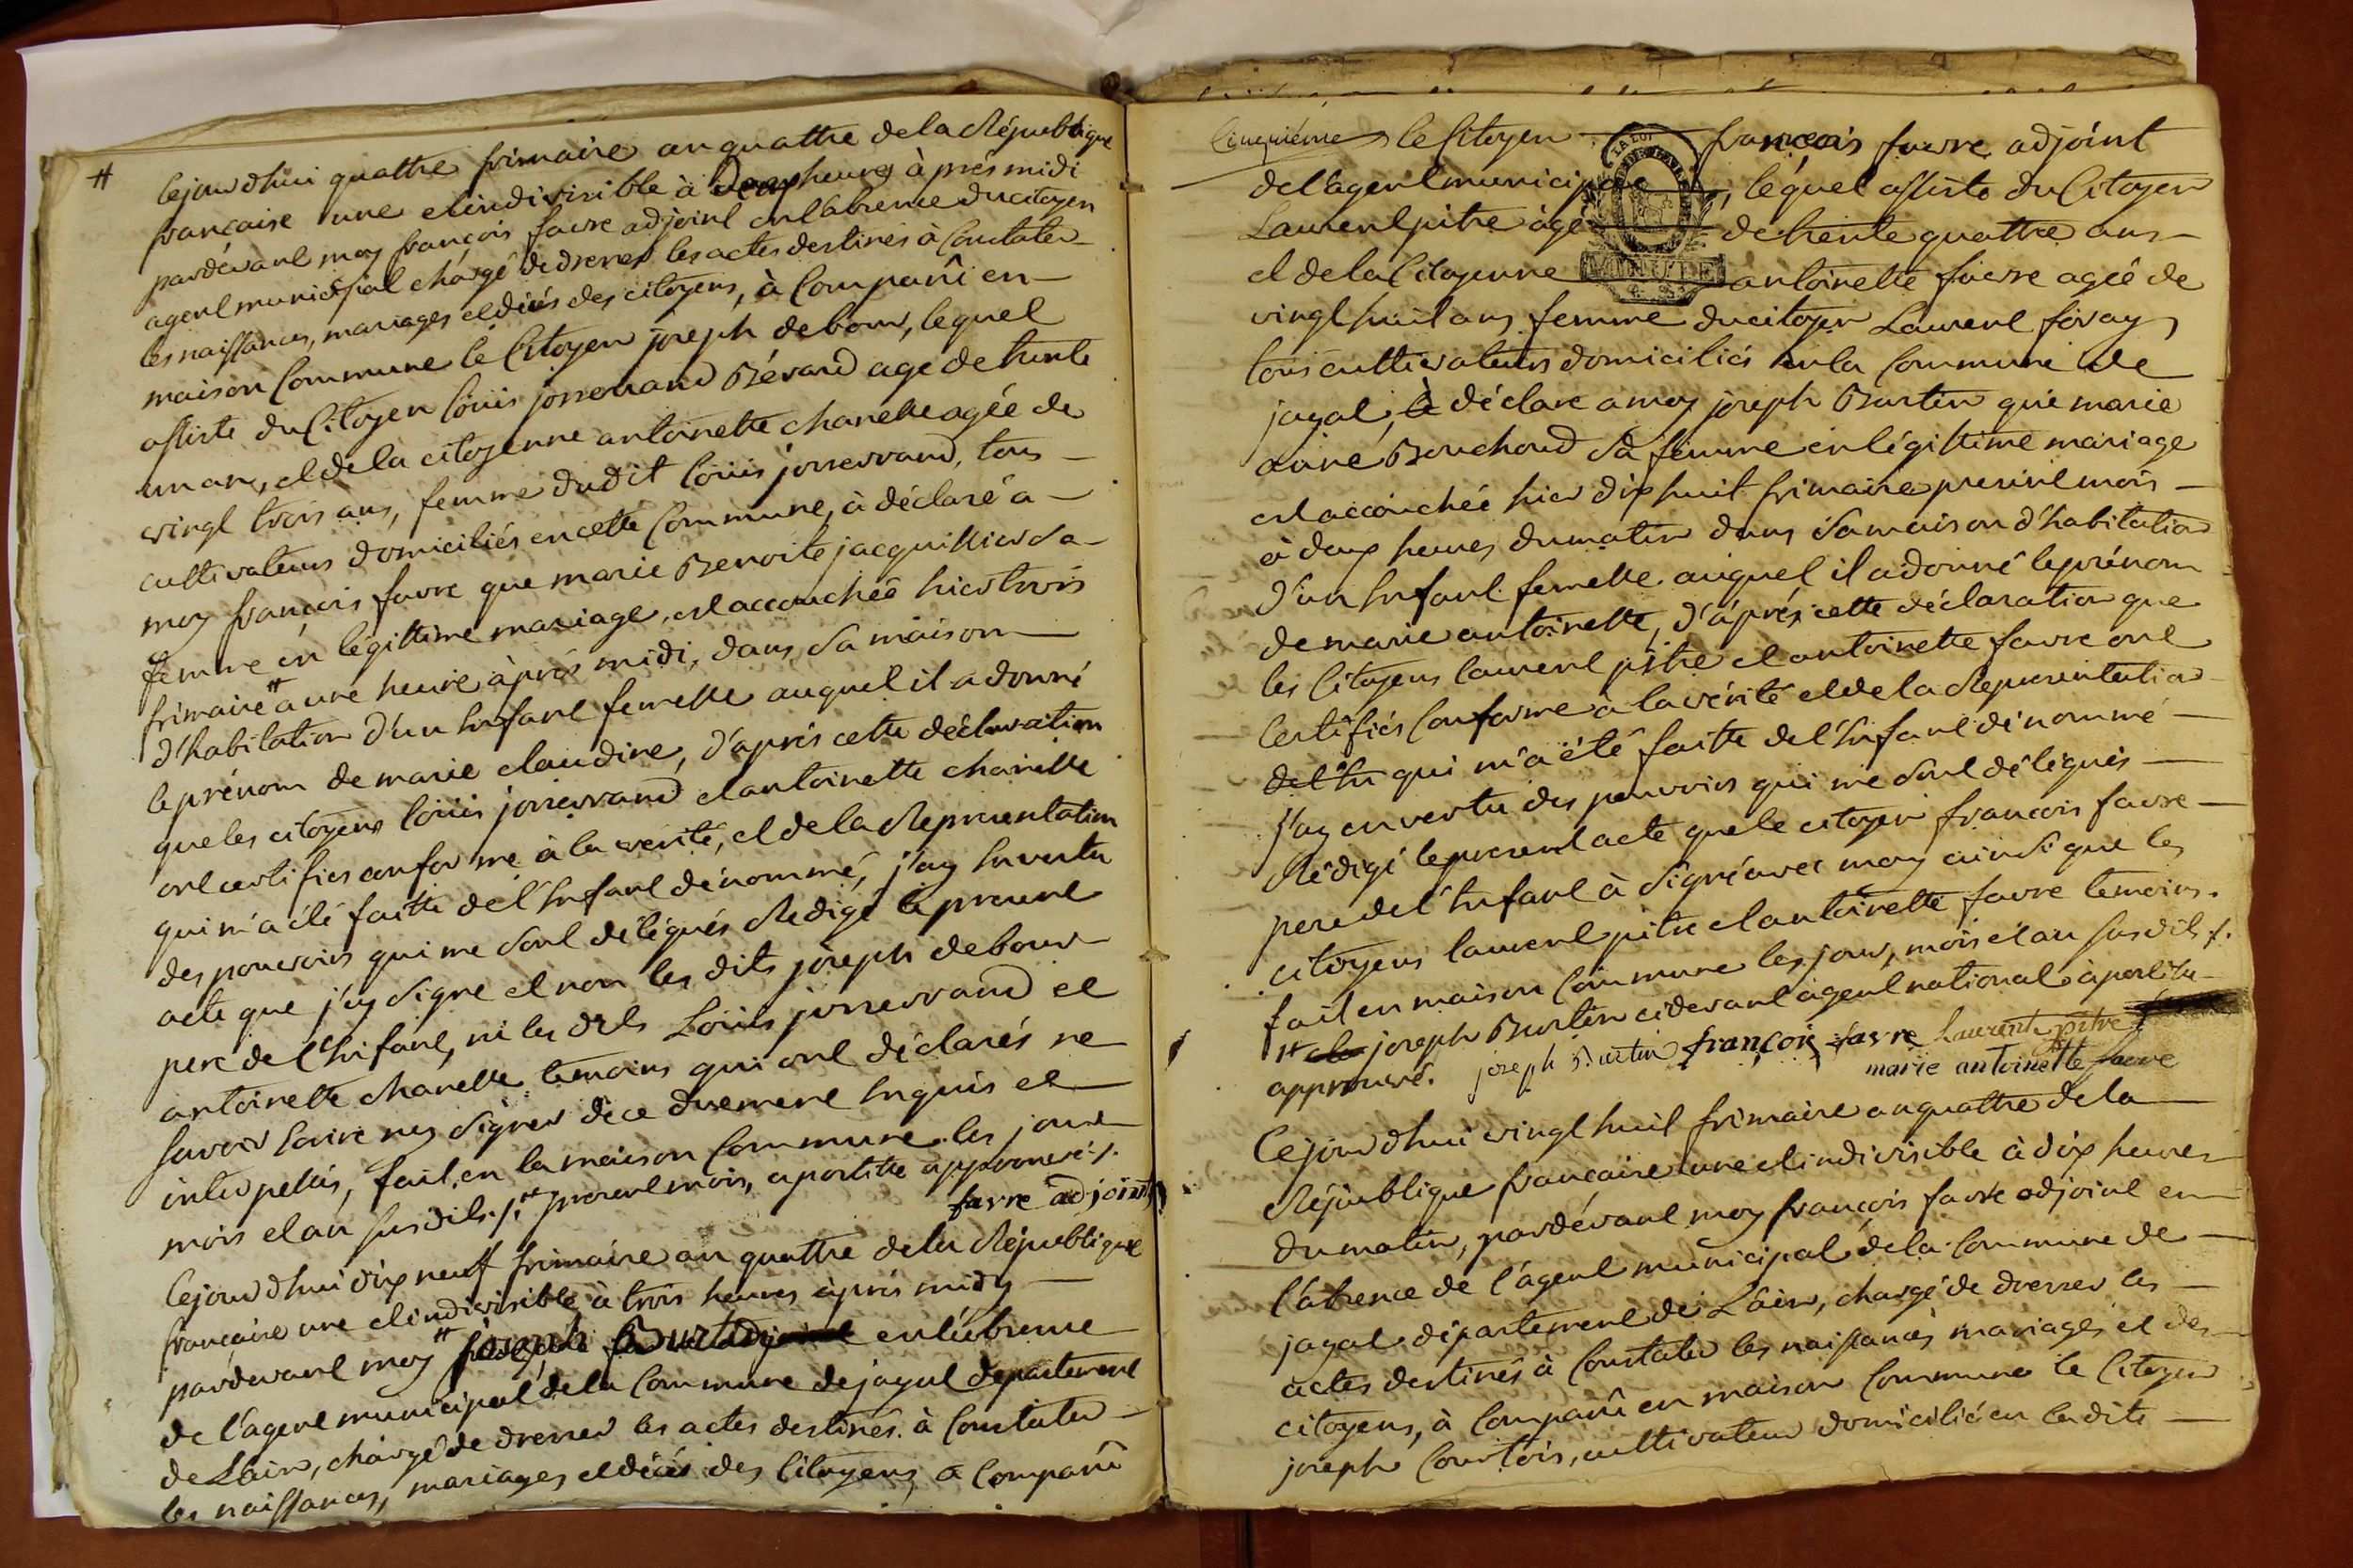 #
Cejourdhui quattre frimaire an quattre de la République
française une et indivisible à deux heures à près midi
pardevant moy françois favre adjoint en l'absence du citoyen
agent municipal chargé de dresser les actes destinés à Constater
les naissances, mariages et décès des citoyens, à Comparû en
maison Commune le Citoyen joseph debour, lequel
assisté du Citoyen Loüis josserrand Bévard agé de trente
un an, et de la citoyenne antoinette charvelle agée de
vingt trois ans, femme dudit loüis josserrand, tous
cultivateurs domiciliés en cette Commune, à déclaré a
moy françois favre que marie Benoite jacquillier sa
femme en légittime mariage, est accouchée hier trois
frimaire # a une heure àprés midi, dans sa maison
d'habitation d'un Enfant femelle auquel il a donné
le prénom de marie claudine, d'aprés cette déclaration
que les citoyens loüis josserrand et antoinette charvelle
ont certifiés conforme à la verité, et de la Representation
qui m'a été faitte de l'Enfant dénommé, j'ay En vertu
des pouvoirs qui me sont délégués Redigé le present
acte que j'ay signé et non les dits joseph debour
pere de l'Enfant, ni les dits Loüis josserrand et
antoinette charvelle temoins qui ont déclarés ne
savoir Ecrire ny signer de ce duement Enquis et
interpellés, fait en la maison Commune les jour
mois et an susdits ./. # present mois, apostille approuvé ./.
favre adjoint
Cejourdhui dix neuf frimaire an quattre de la République
française une et indivisible à trois heures aprés midy
pardevant moy # en l'absence
de l'agent municipal de la Commune de jayat departement
de L'ain, chargé de dresser les actes destinés à Constater
les naissances, mariages et décès des Citoyens, a Comparû
Cinquiéme le Citoyen françois favre adjoint
de l'agent municipal, léquel assisté du Citoyen
Laurent pitre agé de trente quattre ans
et de la Citoyenne antoinette favre agée de
vingt huit ans femme du citoyen Laurent
LA LOI
MINUTE
tous cultivateurs domiciliés en la Commune de
jayat, à déclaré a moy joseph Burtin que marie
anne Bouchoud sa femme en légittime mariage
est accouchée hier dix huit frimaire present mois
à deux heures du matin dans sa maison d'habitation
d'un Enfant femelle auquel il a donné le prénom
de marie antoinette, d'aprés cette déclaration que
les Citoyens laurent pitre et antoinette favre ont
Certifiés Conforme à la vérité et de la Representation
del'En qui m'a été faitte de l'Enfant dénommé
j'ay en vertu des pouvoirs qui me sont délégués
Rédigé le present acte que le citoyen françois favre
pere de l'Enfant à signé avec moy ainsi que les
citoyens laurent pitre et antoinette favre temoins.
fait en maison Commune les jour, mois et an susdits ./.
# joseph Burtin cidevant agent national apostille
approuvé. joseph Burtin françois favre Laurent pitre
marie antoinette favre
Cejourdhui vingt huit frimaire an quattre de la
République française une et indivisible à dix heures
du matin, pardévant moy françois favre adjoint en
l'absence de l'agent municipal de la Commune de
jayat département de L'ain, chargé de dresser les
actes destinés à Constater les naissances mariages et des
citoyens, à Comparû en maison Commune le Citoyen
joseph Courtois, cultivateur domicilié en ladite